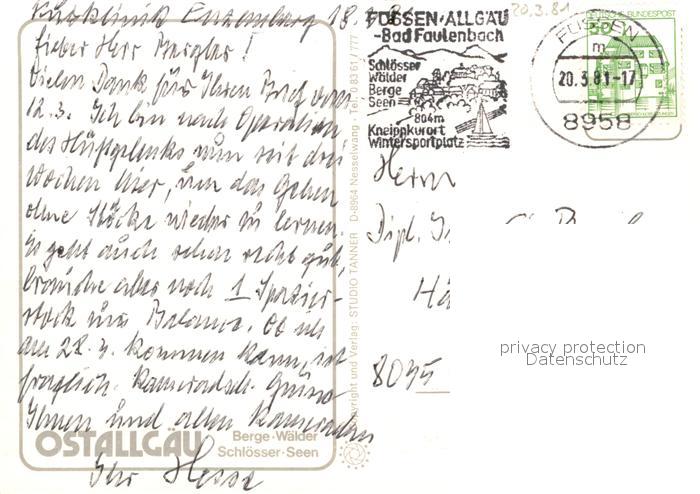 Kurklinik Enzensberg 18.
Lieber Herr Bergler!
Vielen Dank für Ihren Brief vom
12.3. Ich bin nach Operation
des Hüftgelenks nun seit drei
Wochen hier, um das Gehen
ohne Stöcke wieder zu lernen.
Es geht auch schon recht gut,
brauche aber noch 1 Spazier-
stock zur Balance. Ob ich
am 28.3. kommen kann, ist
fraglich. Kameradsch. Grüße
Ihnen und allen Kameraden
Ihr Hesse
OSTALLGÄU
Berge·Wälder
Schlösser·Seen
Copyright und Verlag: STUDIO TANNER D-8964 Nesselwang · Tel. 0 83 61 / 777
20.3.81
FÜSSEN·ALLGÄU
-Bad Faulenbach
Schlösser
Wälder
Berge
Seen
804m
Kneippkurort
Wintersportplatz
FÜSSEN
m
20.3.81-17
8958
DEUTSCHE BUNDESPOST
50
Herrn
Dipl.
8035
privacy protection
Datenschutz